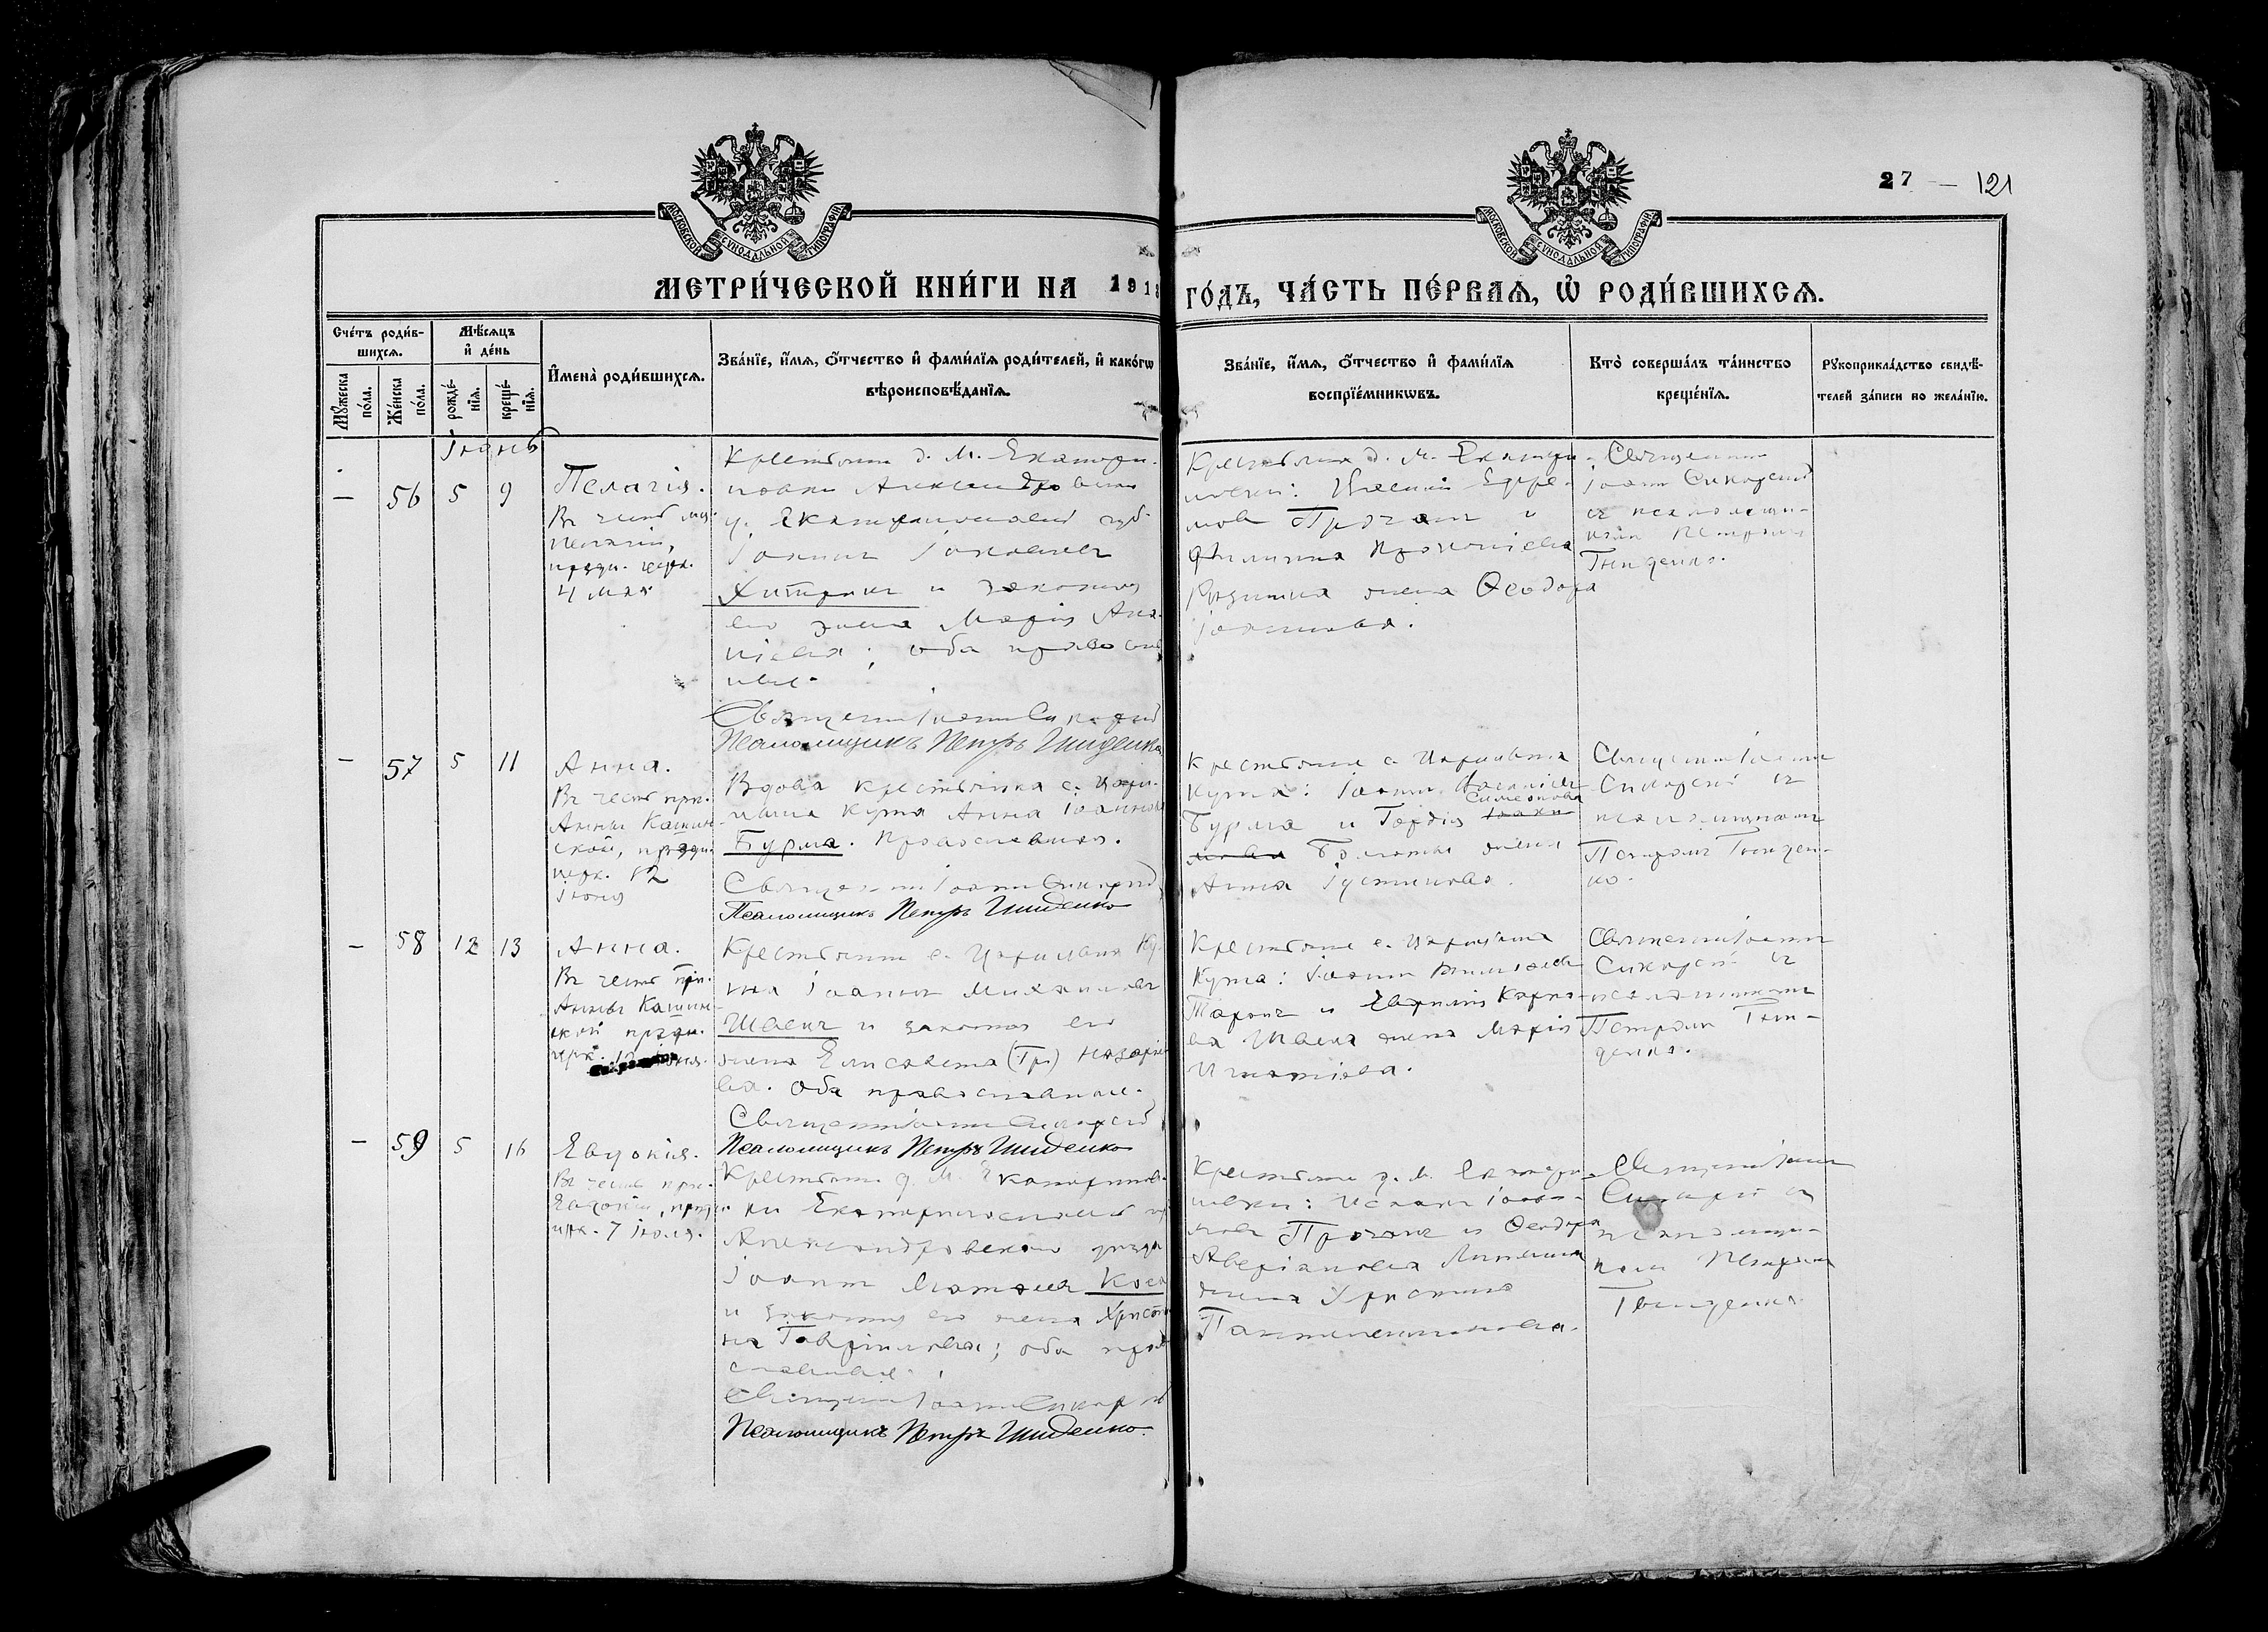 27 — 121
МОСКОВСКОЙ СУНОДАЛЬНОЙ ТИПОГРАФІИ
МОСКОВСКОЙ СУНОДАЛЬНОЙ ТИПОГРАФІИ
МЕТРИ́ЧЕСКОЙ КНИ́ГИ НА 191
ГО́ДЪ, ЧА́СТЬ ПЕ́РВАѦ, Ѡ҆ РОДИ́ВШИХСѦ.
Сче́тъ роди́в-
шихсѧ.
Мѣ́сѧцъ
и҆ де́нь
Мꙋ́жеска
по́ла.
Же́нска
по́ла.
рожде́-
нїѧ.
креще́-
нїѧ.
И҆мена̀ роди́вшихсѧ.
Зва́нїе, и҆́мѧ, ѻ҆́тчество и҆ фами́лїѧ роди́телей, и҆ како́гѡ
вѣроисповѣ́данїѧ.
Зва́нїе, и҆́мѧ, ѻ҆́тчество и҆ фами́лїѧ
воспрїе́мникѡвъ.
Кто̀ соверша́лъ та́инство
креще́нїѧ.
Рꙋкоприкла́дство свидѣ́-
телей за́писи по жела́нїю.
Іюнь
— 56 5 9
Пелагія.
Въ честь
Пелагіи,
празн. церк.
4 мая
Крестьян. д. М. Екатери-
новки Александровскаго
у. Екатеринославск. губ.
Іоаннъ Іоковлевъ
Хитрикъ и законная
его жена Марія Ана-
ніева; оба православ-
ные.
Священникъ Іоаннъ Сикорскій
Псаломщикъ Петръ Гниденко
Крестьяне д. М. Екатери-
новки: Ефре-
мовъ и
Филиппа Прокопіева
жена Ѳеодора
Іоаннова.
Священникъ
Іоаннъ Сикорскій
съ псаломщи-
комъ Петромъ
Гниденко.
— 57 5 11
Анна.
Въ честь прп.
Анны Кашин-
ской, празн.
церк. 12
Іюня
Вдова крестьянка с. Цари-
цына Кута Анна Іоаннова
Бурма. Православная.
Священникъ Іоаннъ Сикорскій
Псаломщикъ Петръ Гниденко
Крестьяне с. Царицына
Кута: Іоаннъ
Бурма и Гордія Симеонова
жена
Анна Іустинова.
Священникъ Іоаннъ
Сикорскій съ
псаломщикомъ
Петромъ Гниден-
ко.
— 58 12 13
Анна.
Въ честь прп.
Анны Кашин-
ской празн.
церк. 12 Іюня.
Крестьян. с. Царицына Ку-
та Іоаннъ Михаиловъ
Швецъ и законная его
жена Елисавета (Гр.) Назаріе-
ва. Оба православные.
Священникъ Іоаннъ Сикорскій
Псаломщикъ Петръ Гниденко
Крестьяне с. Царицына
Кута: Іоаннъ
Таранъ и Карпо-
ва Швеца жена Марія
Игнатіева.
Священникъ Іоаннъ
Сикорскій съ
псаломщикомъ
Петромъ Гни-
денко.
— 59 5 16
Евдокія.
Въ честь прп.
Евдокіи, празн.
церк. 7 Іюля.
Крестьян. д. М. Екатеринов-
ки Екатеринославск. губ.
Александровскаго уезда
Іоаннъ Коса
и законная его жена Христи-
на Гавріилова; оба право-
славные.
Священникъ Іоаннъ Сикорскій
Псаломщикъ Петръ Гниденко.
Крестьяне д. М. Екатери-
новки:
и Ѳеодора
Аверіанова
жена Христина
Пантелеимонова.
Священникъ Іоаннъ
Сикорскій съ
псаломщи-
комъ Петромъ
Гниденко.